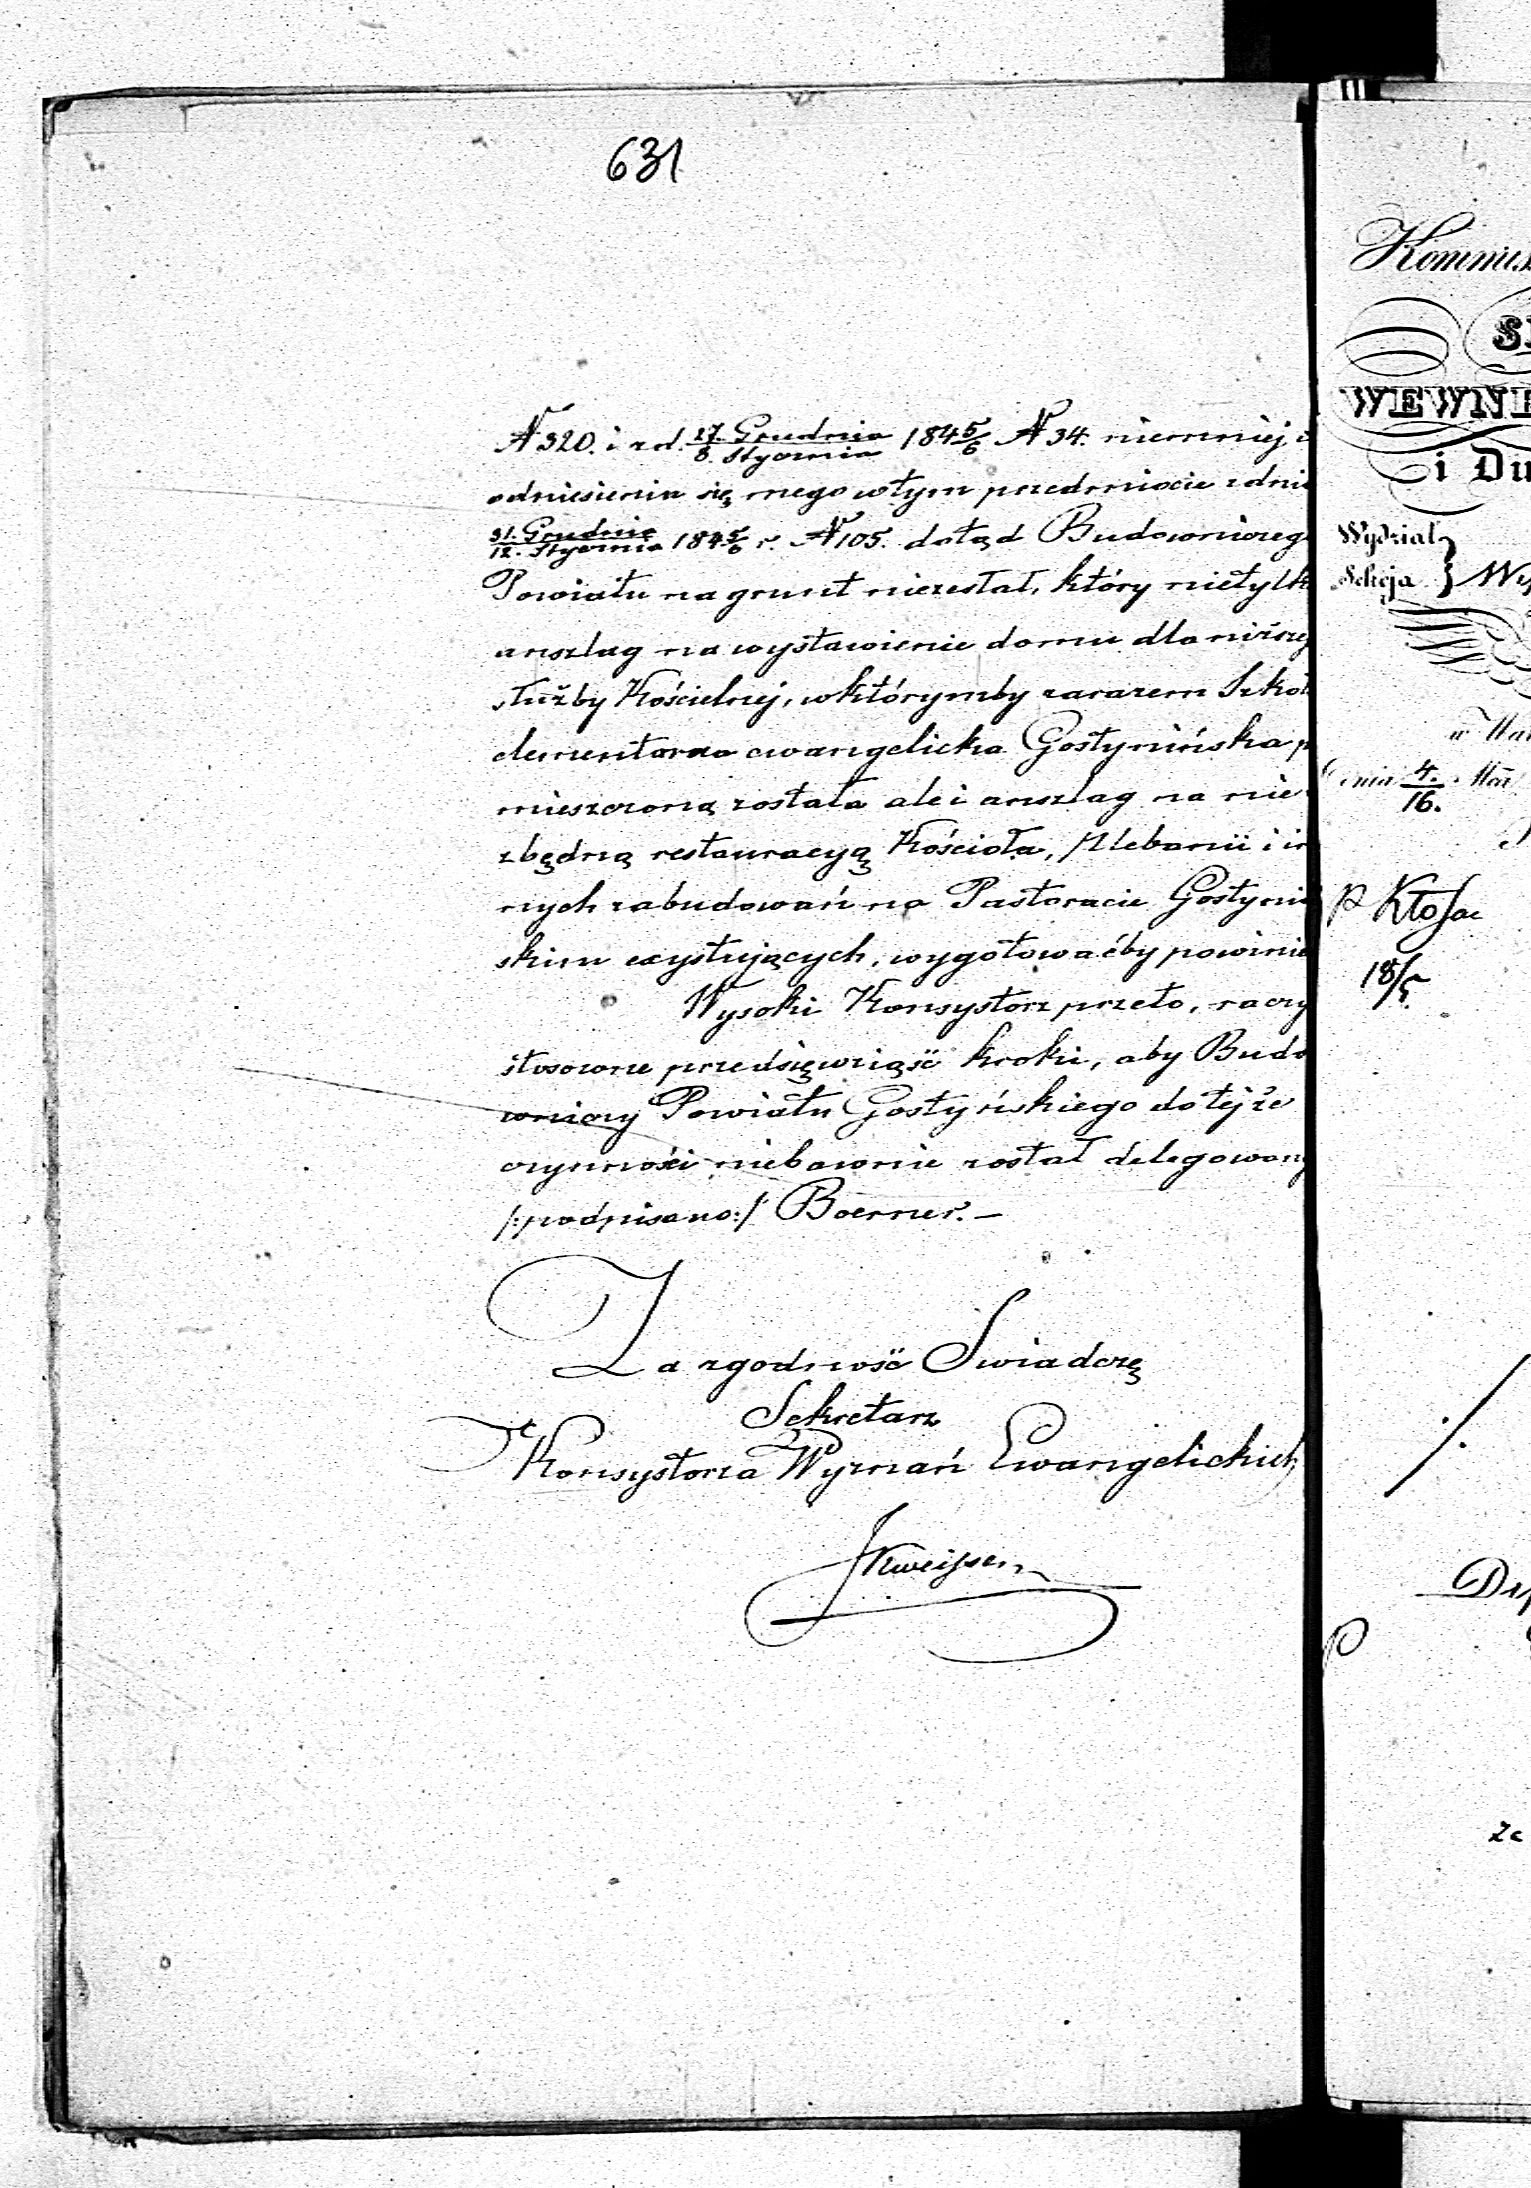 631
N 320. i z d. 27. Grudnia / 8. Stycznia 184 5/6 N 34. niemniej i
odniesienia się mego w tym przedmiocie z dnia
31. Grudnia / 12. Stycznia 184 5/6 r. N 105. dotąd Budowniczeg
Powiatu na grunt niezesłał, który nietylk
anszlag na wystawienie domu dla niższej
służby Kościelnej, w którymby zarazem Szkoł
elementarna ewangelicka Gostynińska p
mieszczoną została ale i anszlag na nie
zbędną restauracyą Kościoła, Plebanii i in
nych zabudowań na Pastoracie Gostyniń
skim exystujących, wygotowaćby powinie
Wysoki Konsystorz przeto, raczy
stosowne przedsięwziąść kroki, aby Budo
wniczy Powiatu Gostyńskiego do tejże
czynności niebawnie został delegowany
/:podpisano:/ Boerner. –
Za zgodność Swiadczę
Sekretarz
Konsystorza Wyznań Ewangelickich
Kommis
WEWNE
i Du
Wydział
Sekcja
Wy
w War
Dnia 4./16. Mar
18/5
Dep
że